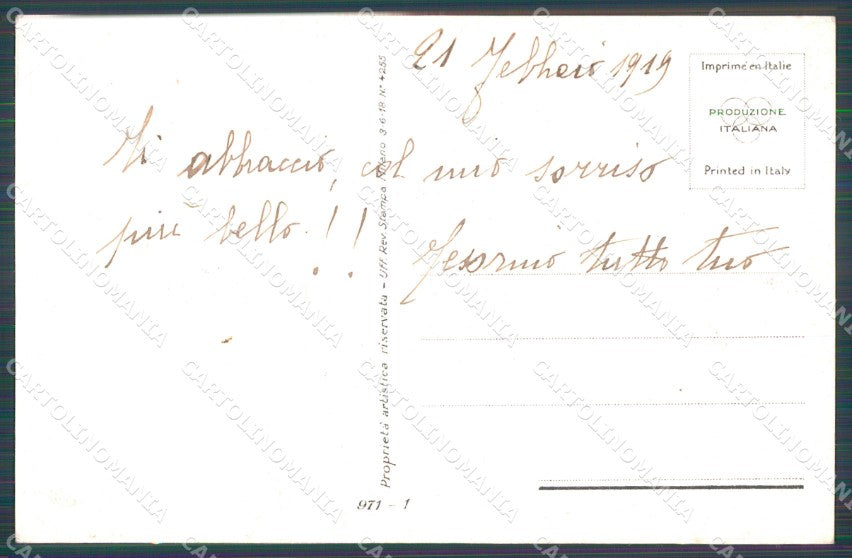 21 Febbraio 1919
Ti abbraccio, col mio sorriso
più bello!!
tutto tuo
Imprimé en Italie
PRODUZIONE
ITALIANA
Printed in Italy
Proprietà artistica riservata - Uff. Rev. Stampa Milano 3-6-18 N° 4255
971 - 1
CARTOLINOMANIA